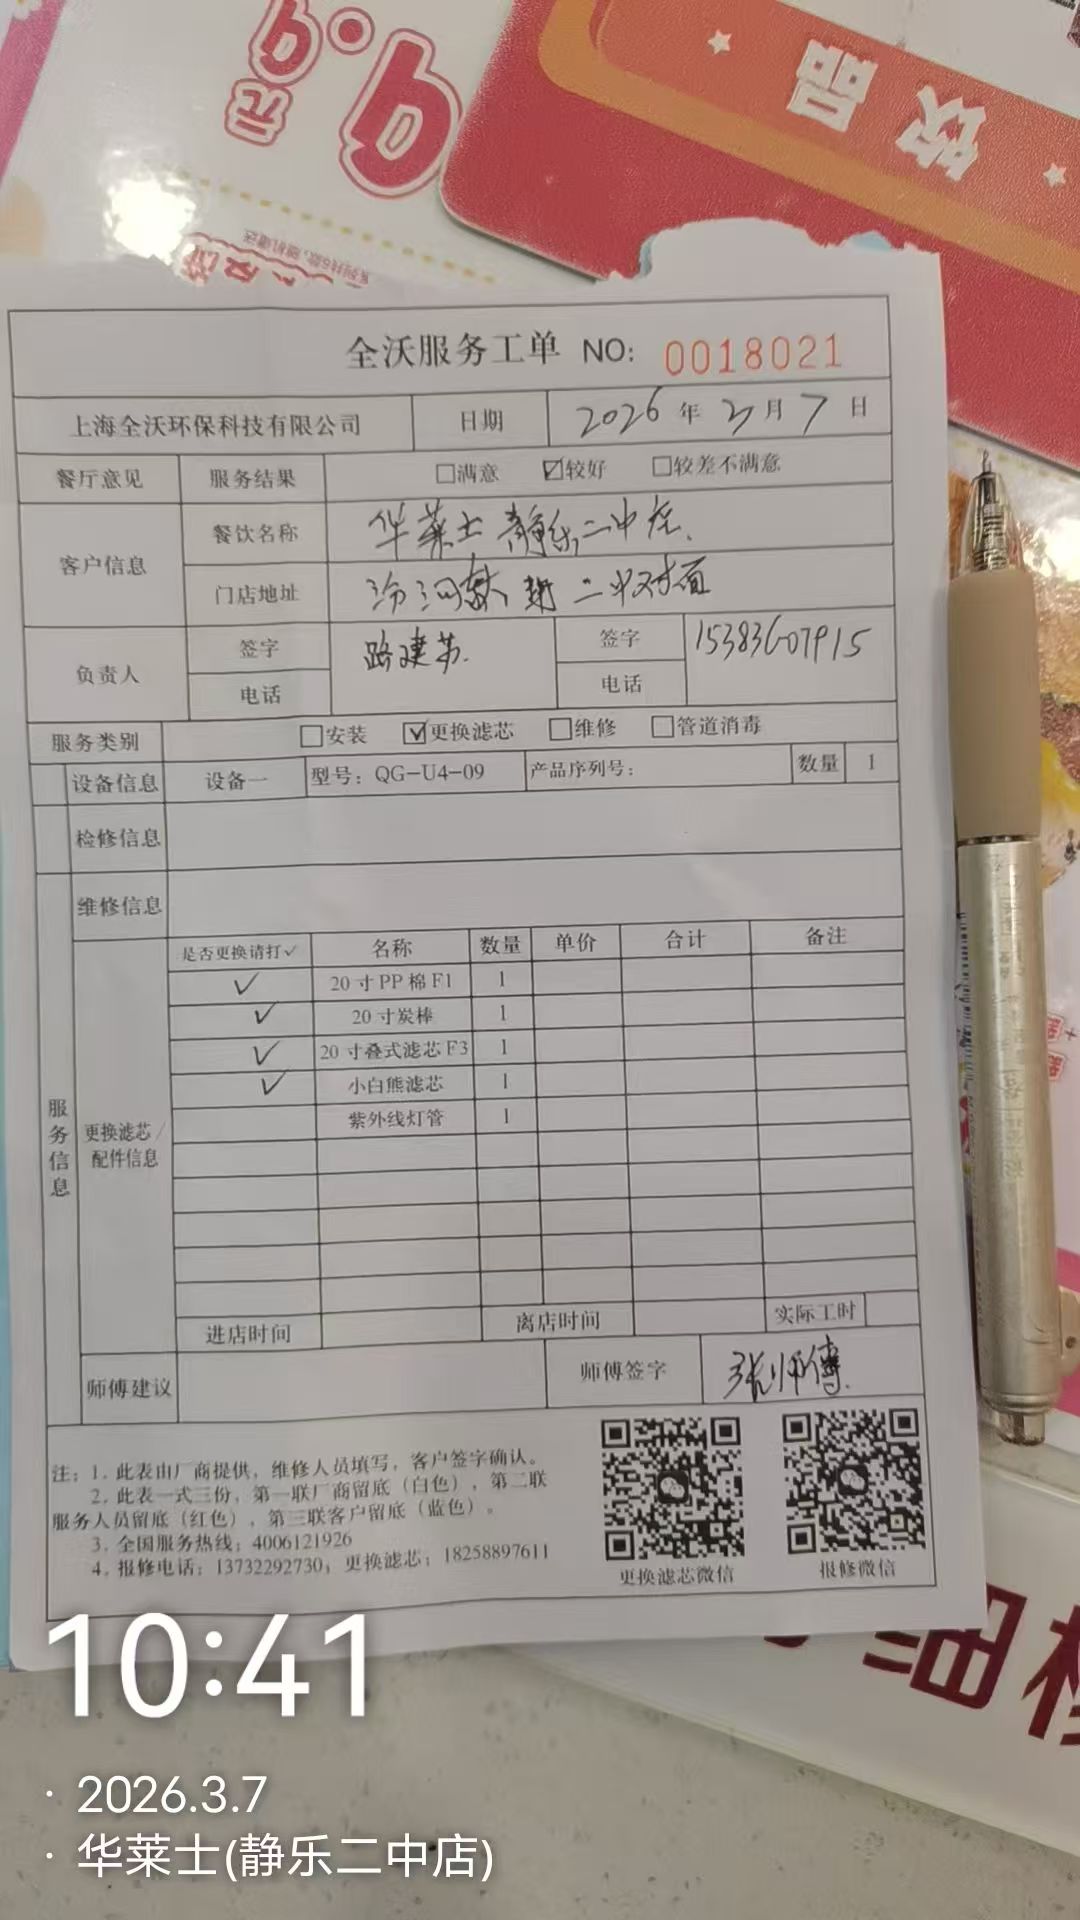 9.9元
饮品
全沃服务工单 NO: 0018021
上海全沃环保科技有限公司 日期 2026年3月7日
餐厅意见 服务结果 □满意 ☑较好 □较差不满意
客户信息 餐饮名称 华莱士静乐二中店
门店地址 二中对面
负责人 签字 路建芳 签字 15383607915
电话 电话
服务类别 □安装 ☑更换滤芯 □维修 □管道消毒
设备信息 设备一 型号：QG-U4-09 产品序列号： 数量 1
检修信息
维修信息
服务信息
更换滤芯/配件信息
是否更换请打✓ 名称 数量 单价 合计 备注
✓ 20寸PP棉F1 1
✓ 20寸炭棒 1
✓ 20寸叠式滤芯F3 1
✓ 小白熊滤芯 1
紫外线灯管 1
进店时间 离店时间 实际工时
师傅建议 师傅签字 张师傅
注：1. 此表由厂商提供，维修人员填写，客户签字确认。
2. 此表一式三份，第一联厂商留底（白色），第二联
服务人员留底（红色），第三联客户留底（蓝色）。
3. 全国服务热线：4006121926
4. 报修电话：13732292730，更换滤芯：18258897611
更换滤芯微信 报修微信
10:41
· 2026.3.7
· 华莱士(静乐二中店)